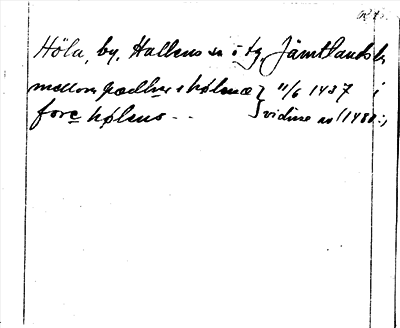 Höla, by, Hallens sn o tg, Jämtlands l.
mellom gædhir s hølenæ } 11/6 1437 i
fore hølens - - } vidine av (1480:,